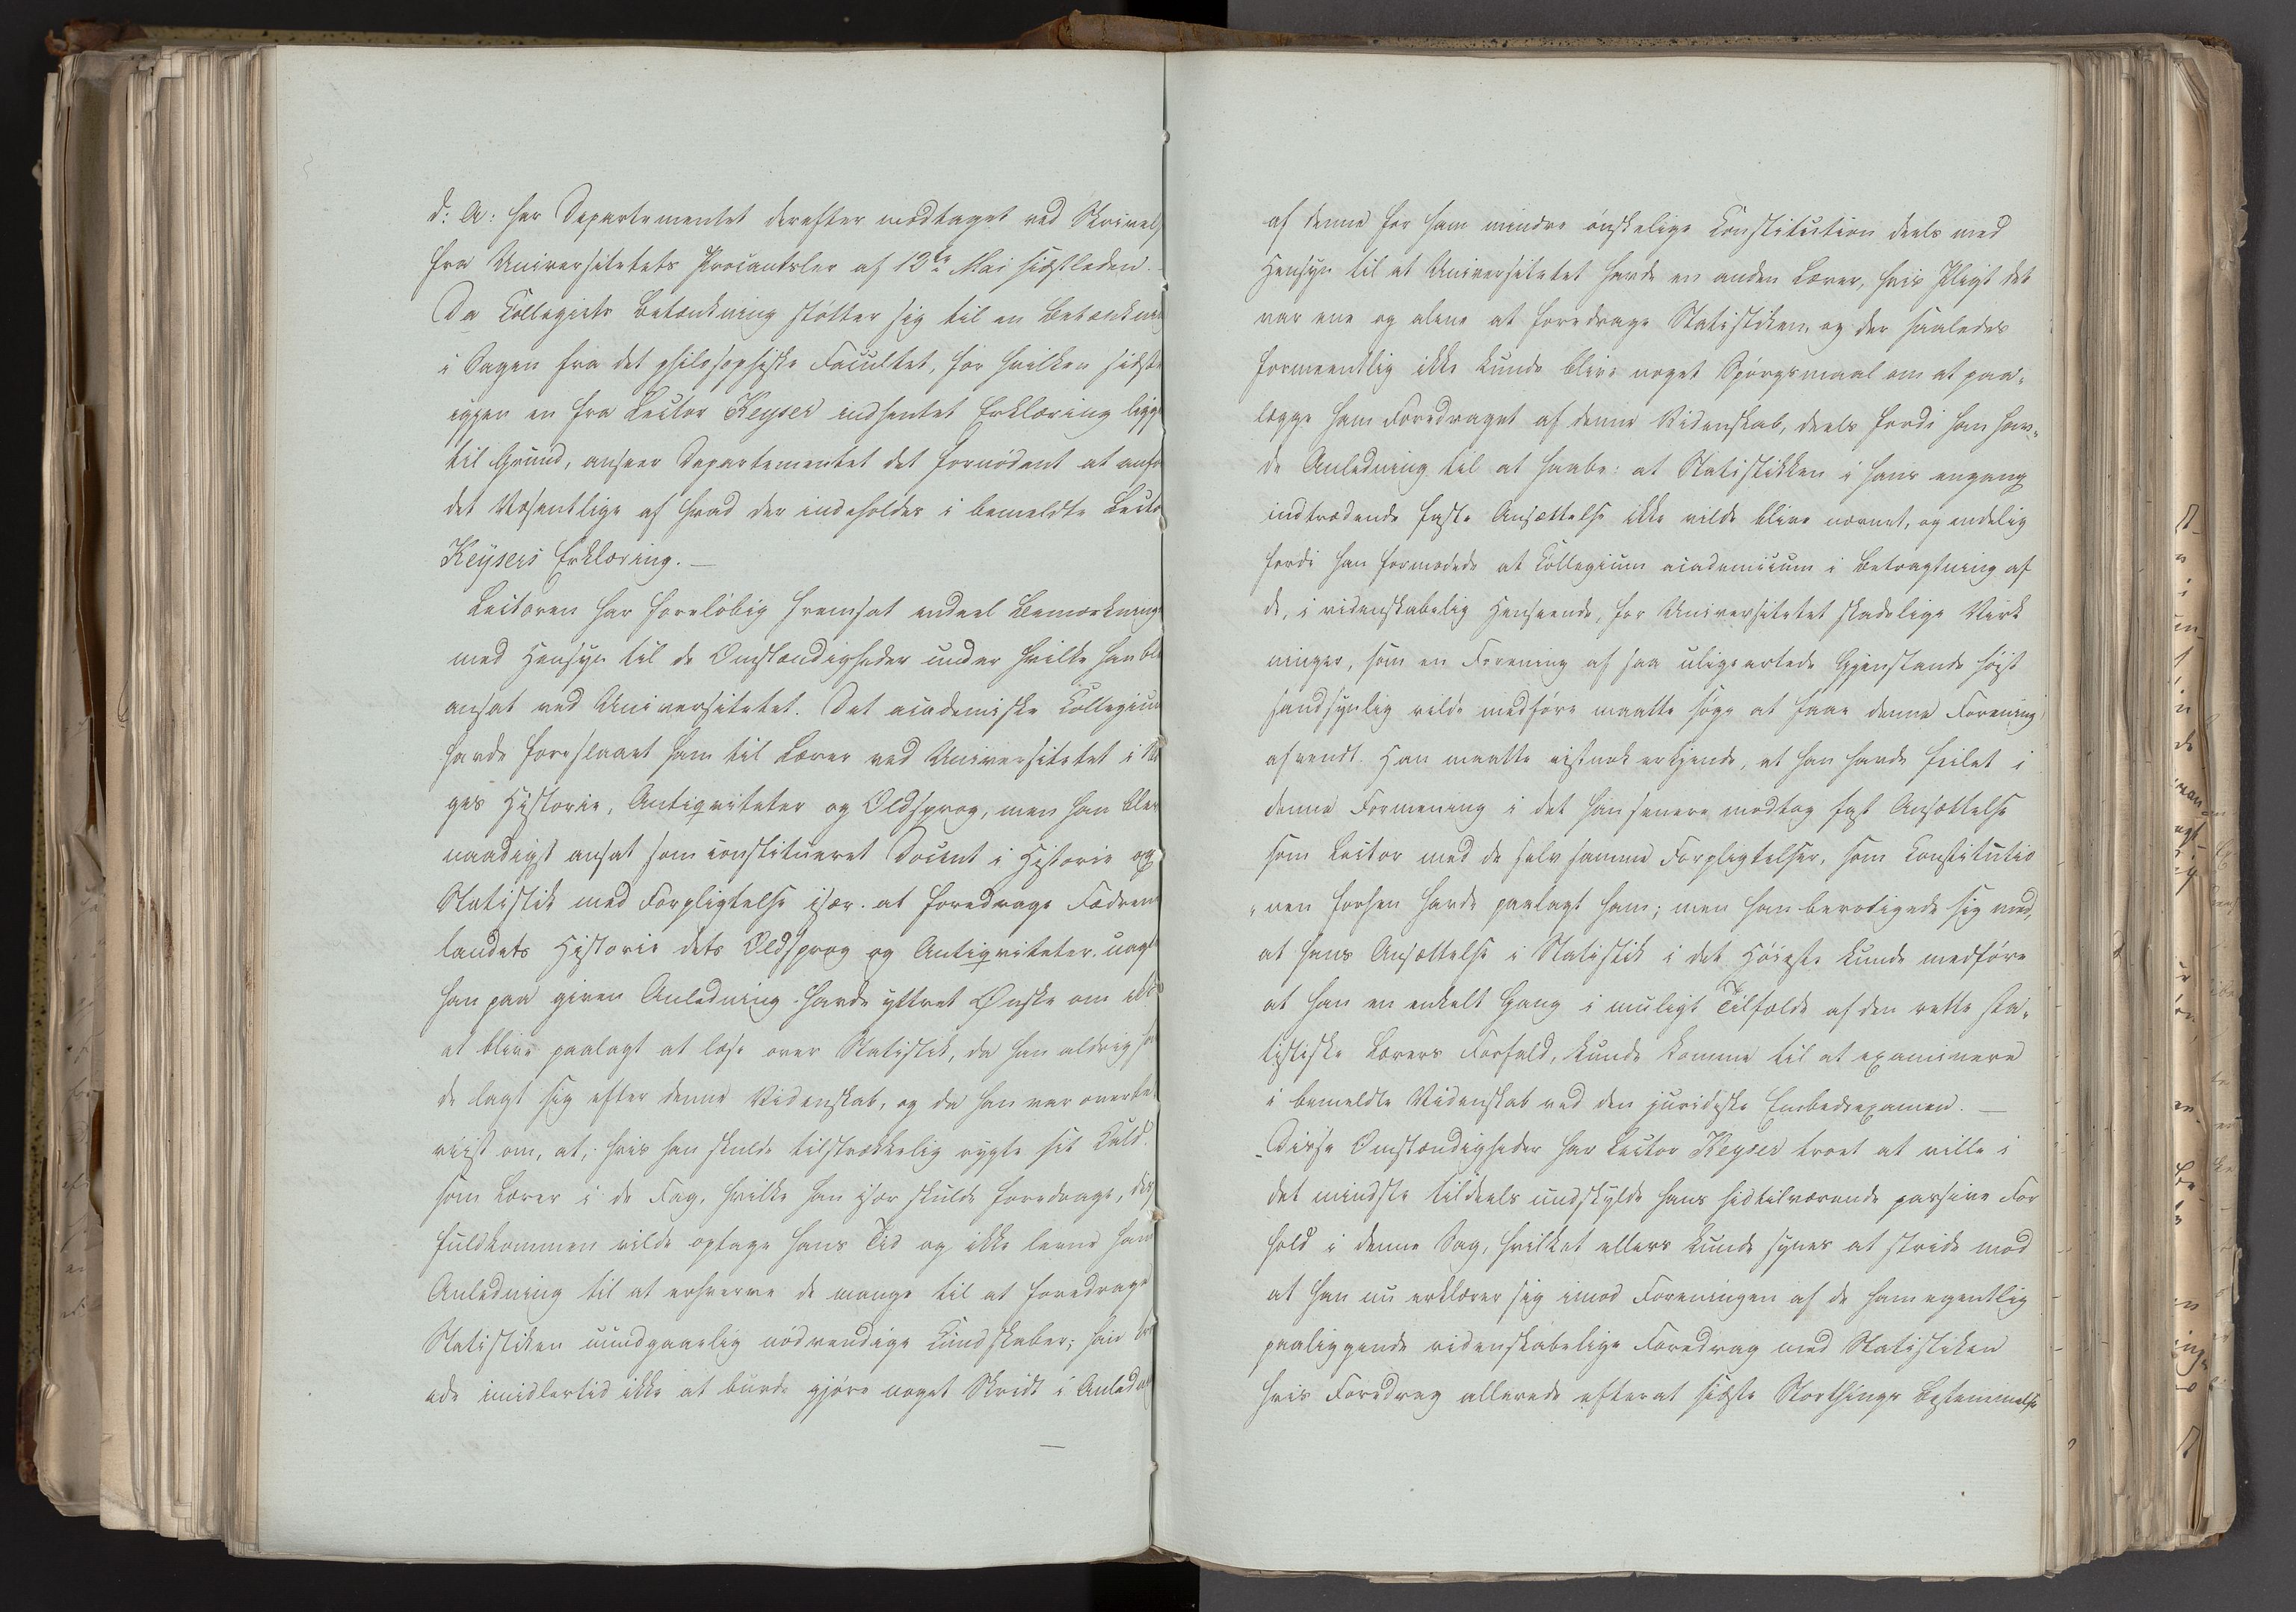 d: A: har Departementet derefter modtaget ved Skrivels
fra Universitetets Procantsler af 13de Mai sidstleden.
Da Collegiets Betænkning støtter sig til en Betænkni
i Sagen fra det philosophiske Facultet, for hvilken sidste
igjen en fra Lector Keyser indhentet Erklæring ligge
til Grund, anseer Departementet det fornødent at anfø
det Væsentlige af hvad der indeholdes i bemeldte Lecto
Keysers Erklæring. —
Lectoren har foreløbig fremsat endeel Bemærkning
med Hensyn til de Omstændigheder under hvilke han ble
ansat ved Universitetet. Det academiske Collegium
havde foreslaaet ham til Lærer ved Universitetet i No
ges Historie, Antiqviteter og Oldsprog, men han blev
naadigst ansat som constitueret Docent i Historie og
Statistik med Forpligtelse især at foredrage Fædrene
landets Historie dets Oldsprog og Antiqviteter, uagt
han paa given Anledning havde yttret Ønske om ikke
at blive paalagt at læse over Statistik, da han aldrig ha
de lagt sig efter denne Videnskab, og da han var overbe
viist om, at, hvis han skulde tilstrækkelig røgte sit Kald
som Lærer i de Fag, hvilke han især skulde foredrage, dis
fuldkommen vilde optage hans Tid og ikke levne ham
Anledning til at erhverve de mange til at foredrage
Statistiken uundgaaelig nødvendige Kundskaber; han tro
ede imidlertid ikke at burde gjøre noget Skridt i Anledn
af denne for ham mindre ønskelige Constitution deels med
Hensyn til at Universitetet havde en anden Lærer, hvis Pligt det
var ene og alene at foredrage Statistiken, og der saaledes
formeentlig ikke kunde blive noget Spørgsmaal om at paa-
lægge ham Foredraget af denne Videnskab, deels fordi han hav-
de Anledning til at haabe: at Statistikken i hans engang
indtrædende faste Ansættelse ikke vilde blive nævnet, og endelig
fordi han formodede at Collegium academicum i Betragtning af
de, i videnskabelig Henseende, for Universitetet skadelige Virk
ninger, som en Forening af saa uligeartede Gjenstande høist
sandsynlig vilde medføre maatte søge at faae denne Forening
afvendt. Han maatte vistnok erkjende, at han havde feilet i
denne Formening i det han senere modtog fast Ansættelse
som Lector med de selv samme Forpligtelser, som Constitutio
-nen forhen havde paalagt ham; men han beroligede sig med,
at hans Ansættelse i Statistik i det Høieste kunde medføre
at han en enkelt Gang i muligt Tilfælde af den rette sta-
tistiske Lærers Forfald, kunde komme til at examinere
i bemeldte Videnskab ved den juridiske Embedsexamen. —
Disse Omstændigheder har Lector Keyser troet at ville i
det mindste tildeels undskylde hans hidtilværende passive For
hold i denne Sag, hvilket ellers kunde synes at stride mod
at han nu erklærer sig imod Foreningen af de ham egentlig
paaliggende videnskabelige Foredrag med Statistiken
hvis Foredrag allerede efterat sidste Storthings Bestemmelse